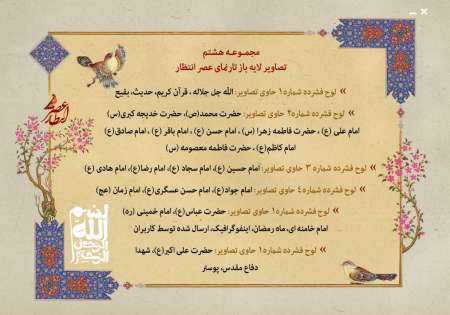 مجموعه هشتم
تصاویر لایه باز تارنمای عصر انتظار
» لوح فشرده شماره ۱ حاوی تصاویر: الله جل جلاله ، قرآن کریم، حدیث، بقیع
» لوح فشرده شماره ۲ حاوی تصاویر: حضرت محمد(ص)، حضرت خدیجه کبری(س)
امام علی (ع) ، حضرت فاطمه زهرا (س) ، امام حسن (ع) ، امام باقر (ع) ، امام صادق(ع)
امام کاظم(ع) ، حضرت فاطمه معصومه (س)
» لوح فشرده شماره ۳ حاوی تصاویر: امام حسین (ع)، امام سجاد (ع)، امام رضا(ع)، امام هادی (ع)
» لوح فشرده شماره ٤ حاوی تصاویر: امام جواد(ع)، امام حسن عسگری(ع)، امام زمان (عج)
» لوح فشرده شماره ۱ حاوی تصاویر: حضرت عباس(ع)، امام خمینی (ره)
امام خامنه ای، ماه رمضان، اینفوگرافیک، ارسال شده توسط کاربران
» لوح فشرده شماره ۱ حاوی تصاویر: حضرت علی اکبر(ع)، شهدا
دفاع مقدس، پوستر
عصر انتظار